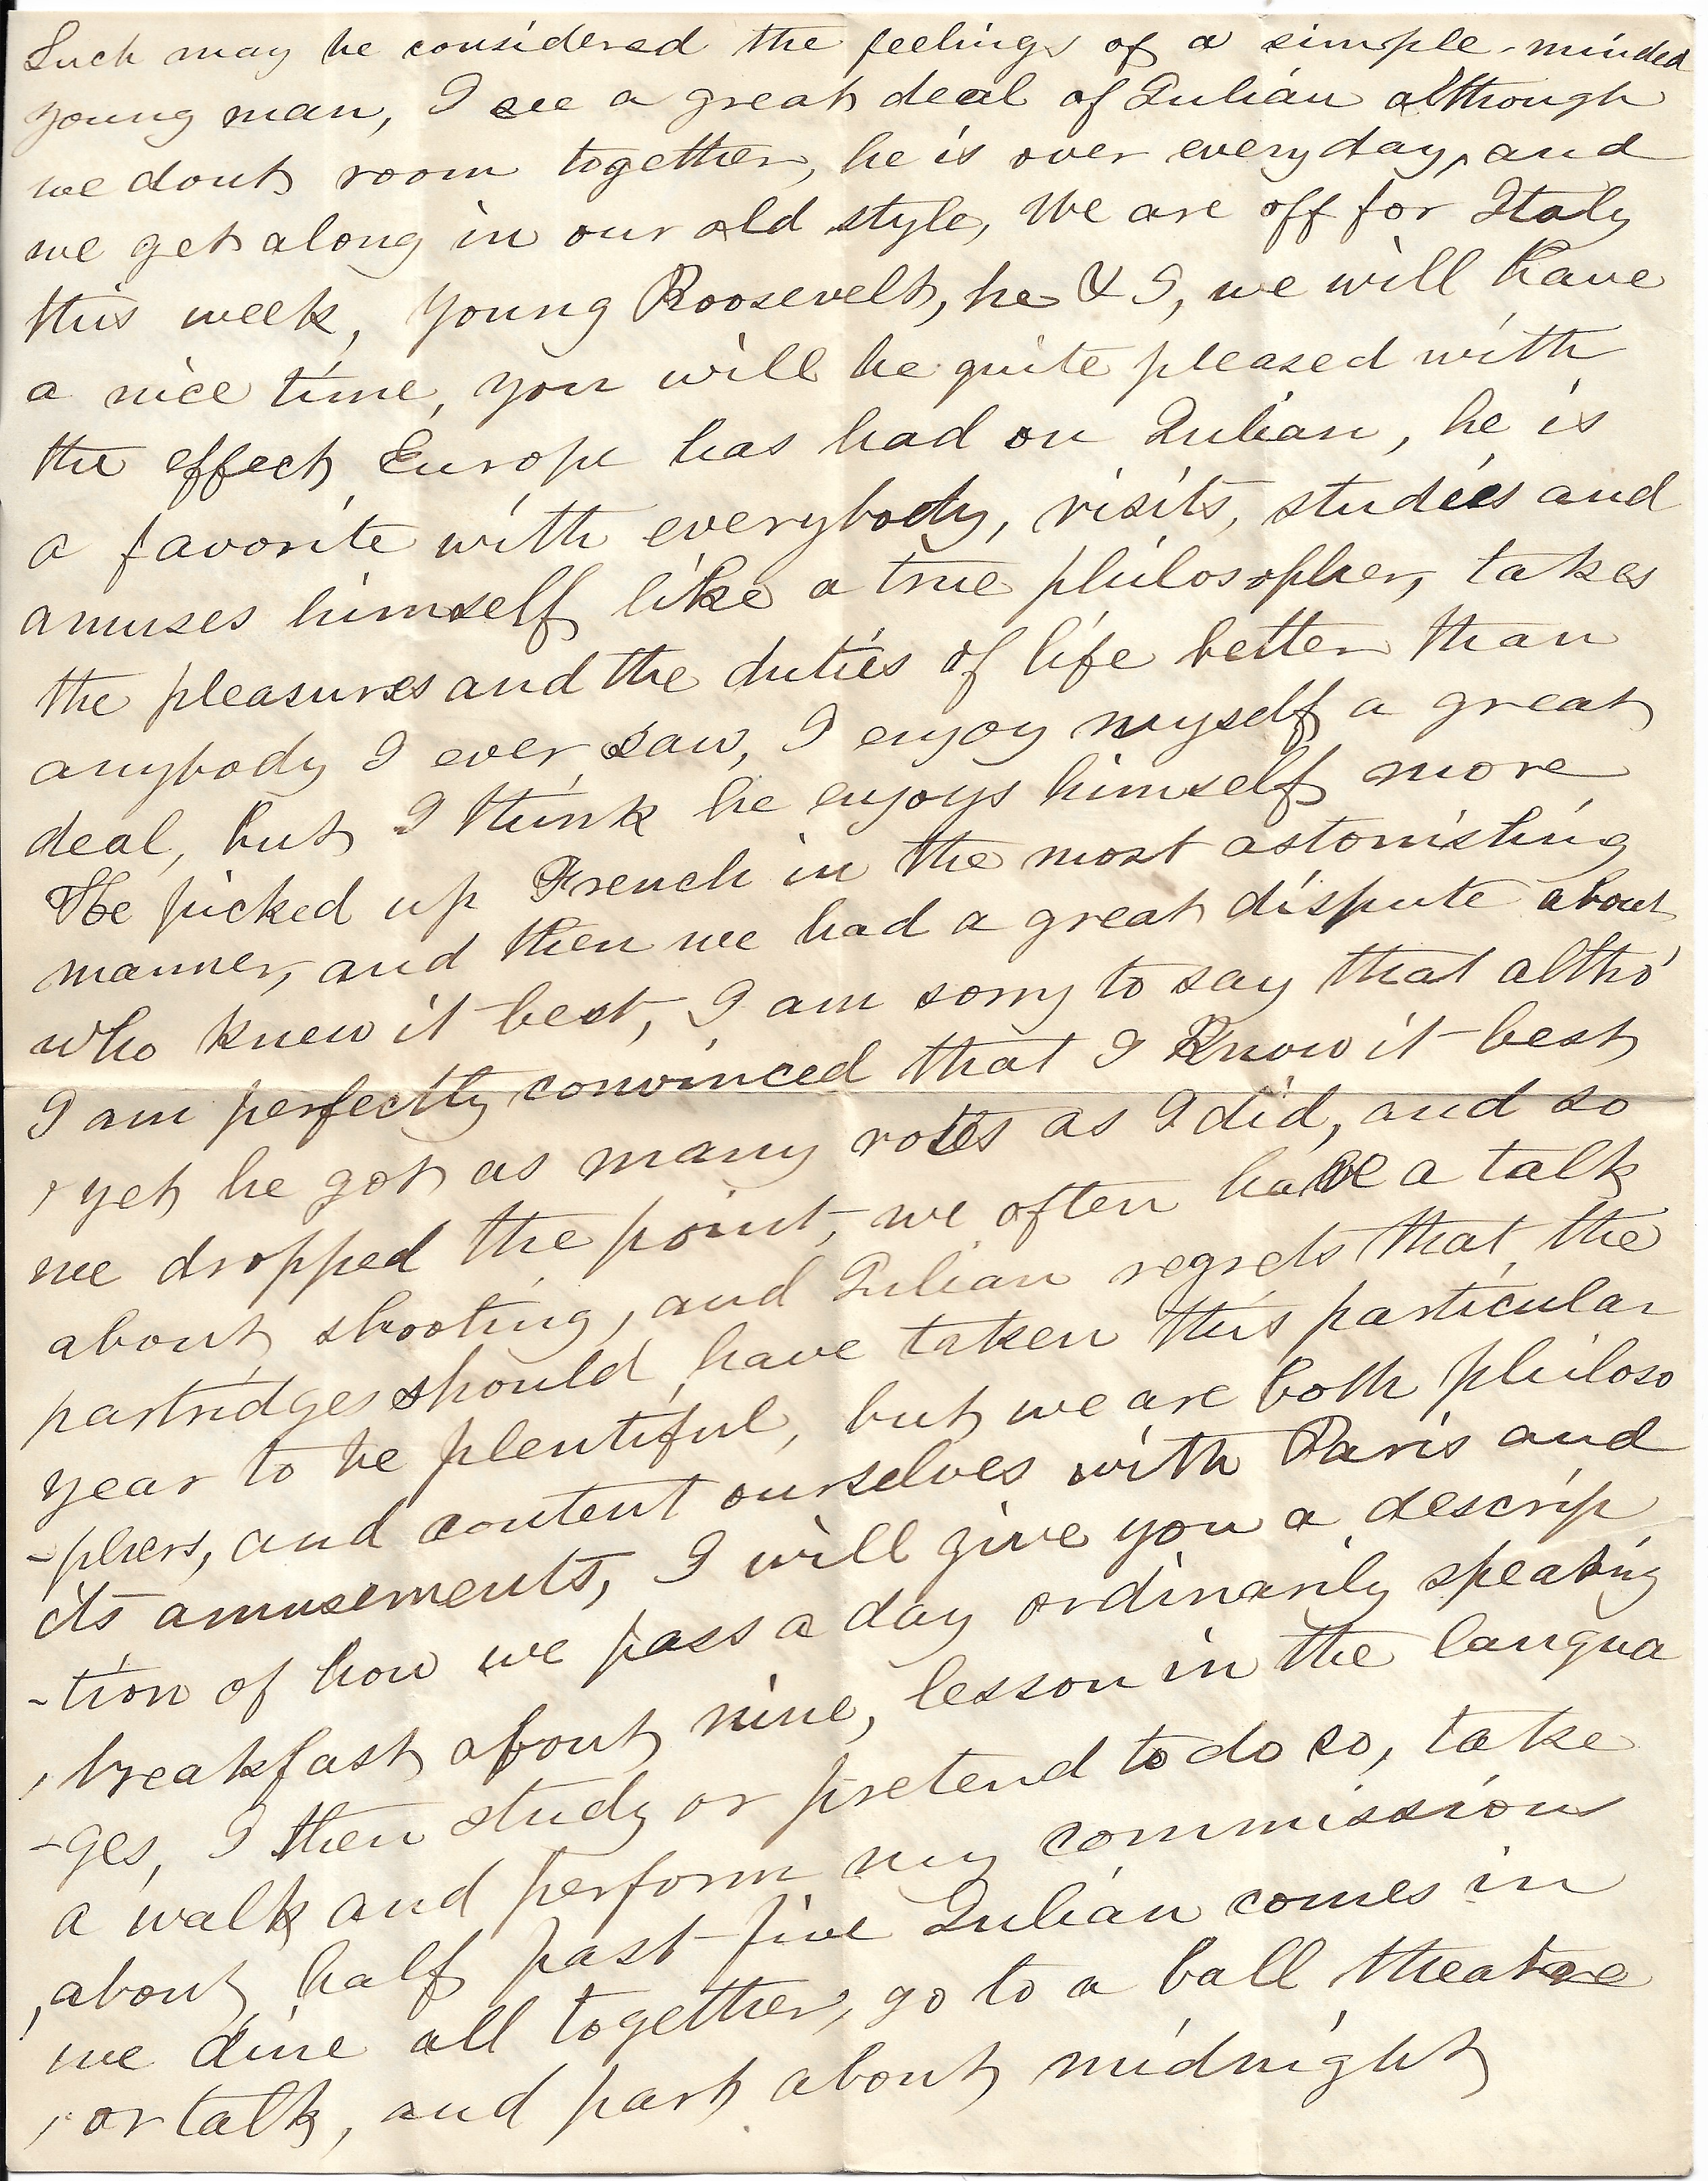 Such may be considered the feelings of a simple-minded
young man, I see a great deal of Julian although
we dont room together, he is over everyday, and
we get along in our old style, We are off for Italy
this week, Young Roosevelt, he & I, we will have
a nice time, you will be quite pleased with
the effect Europe has had on Julian, he is
a favorite with everybody, visits, studies and
amuses himself like a true philosopher, takes
the pleasures and the duties of life better than
anybody I ever saw, I enjoy myself a great
deal, but I think he enjoys himself more
He picked up French in the most astonishing
manner, and then we had a great dispute about
who knew it best, I am sorry to say that altho'
I am perfectly convinced that I Know it best
yet he got as many votes as I did, and so
we dropped the point, we often have a talk
about shooting, and Julian regrets that the
partridges should have taken this particular
year to be plentiful, but we are both philoso
-phers, and content ourselves with Paris and
its amusements, I will give you a descrip
-tion of how we pass a day ordinarily speaking
, breakfast about nine, lesson in the langua
-ges, I then study or pretend to do so, take
a walk and perform my commissions
, about half past five Julian comes in
we dine all together, go to a ball theatre
, or talk, and part about midnight